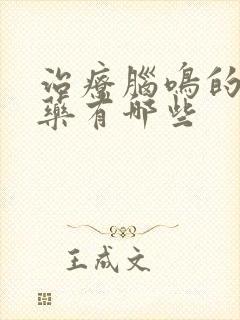 治療腦鳴的
藥有哪些
王成文